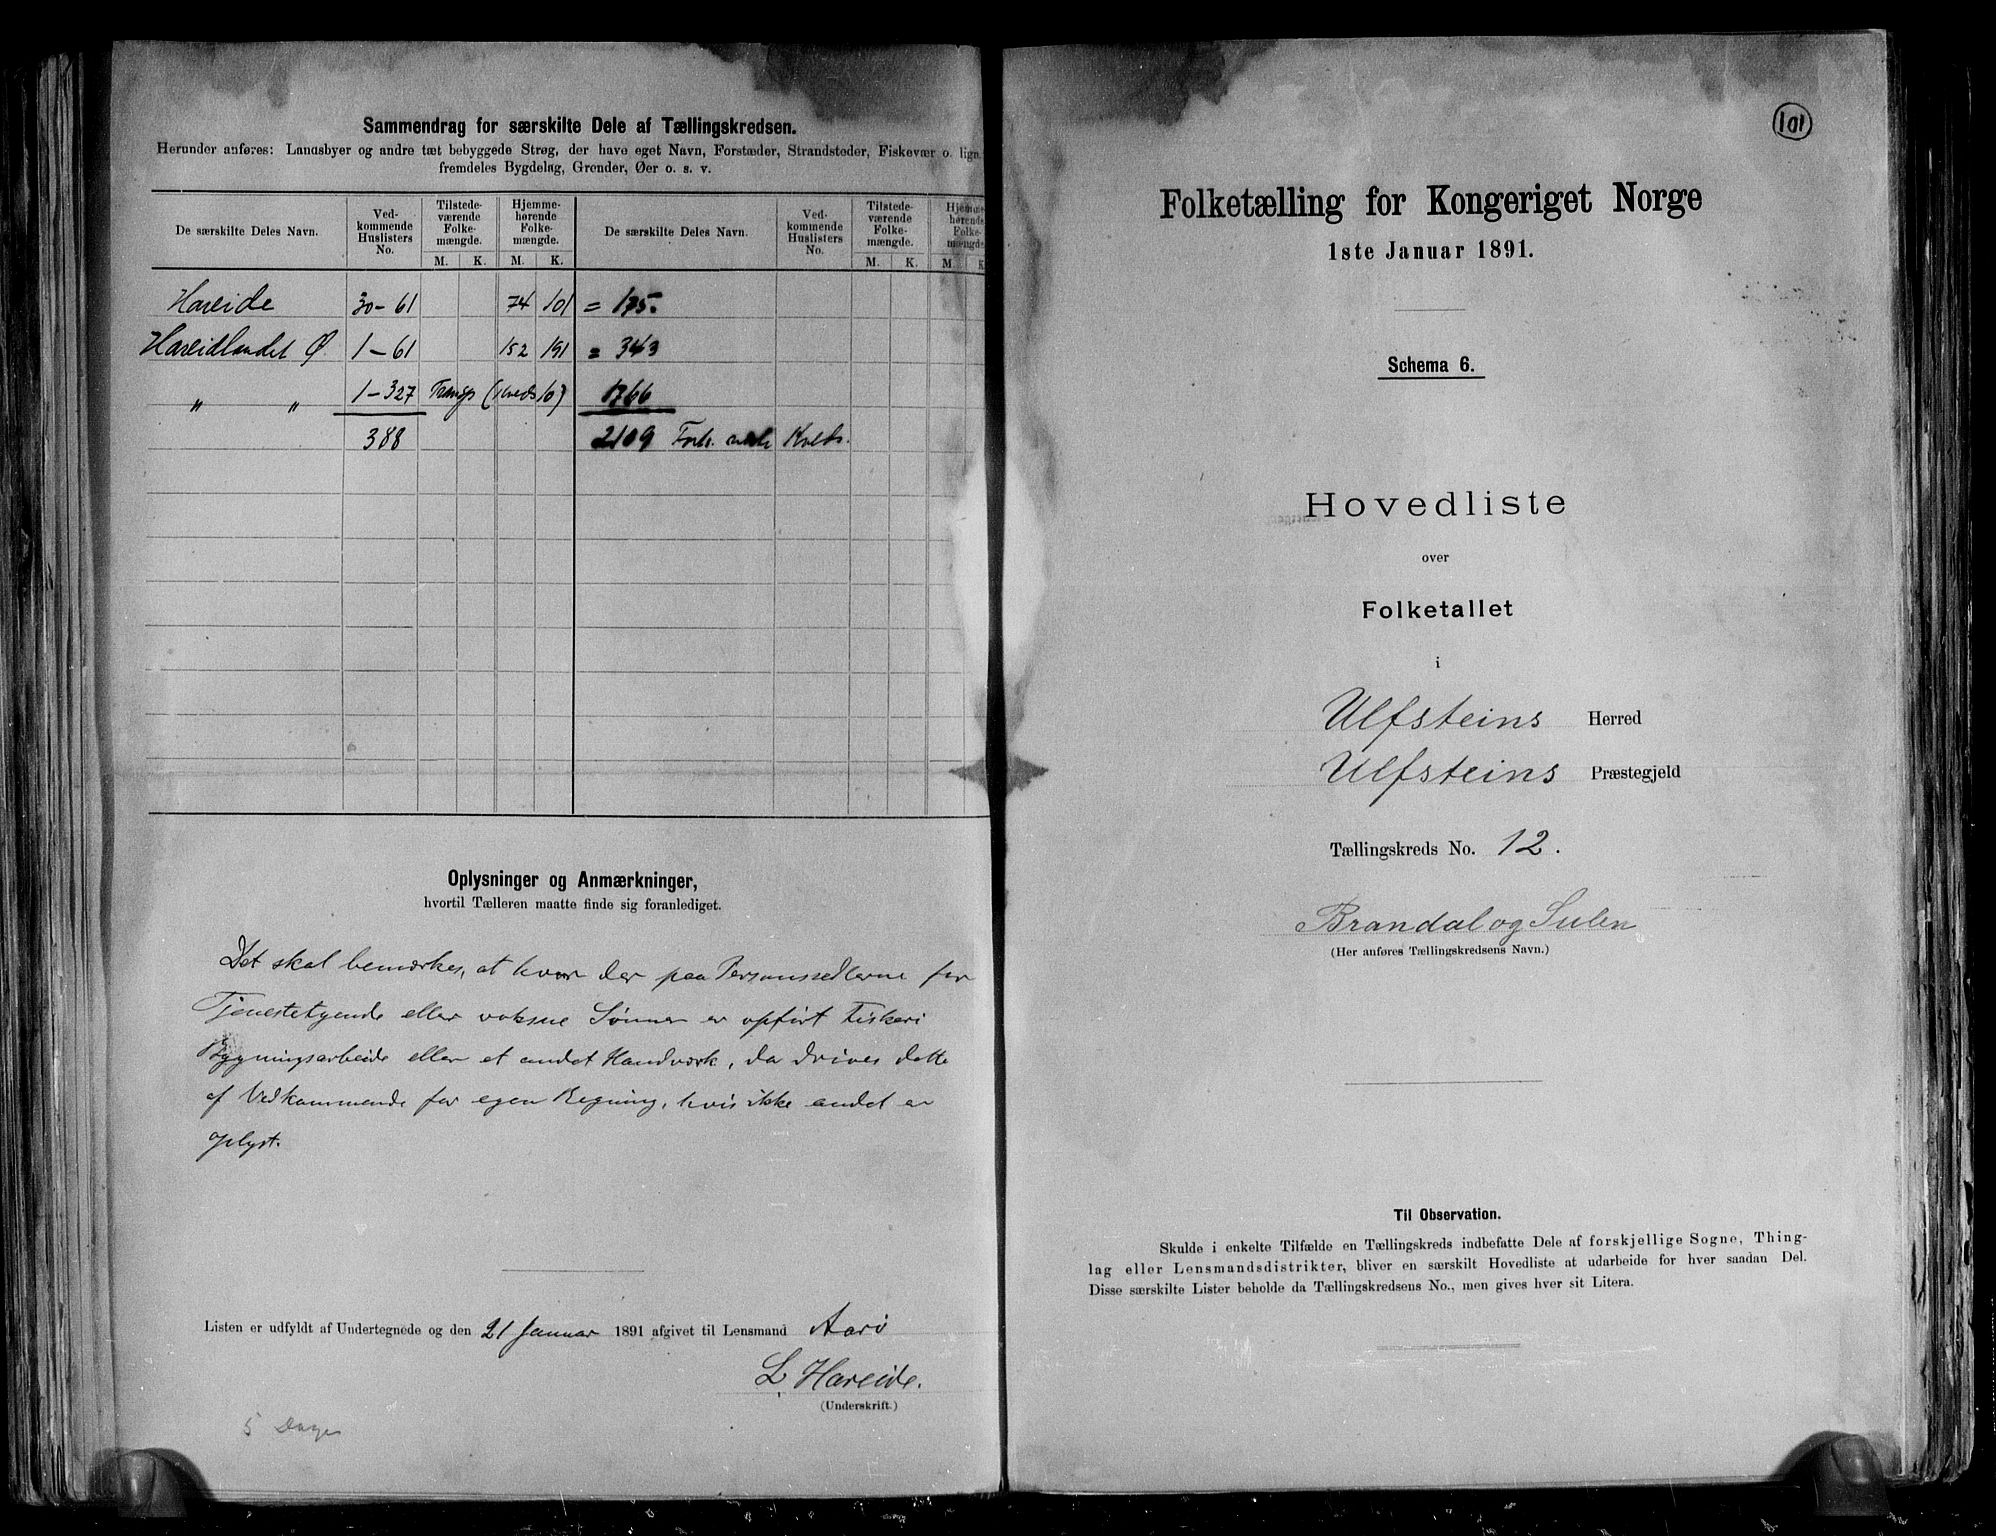 Sammendrag for særskilte Dele af Tællingskredsen.
Herunder anføres: Landsbyer og andre tæt bebyggede Strøg, der have eget Navn, Forstæder, Strandsteder, Fiskevær o. lign.
fremdeles Bygdelag, Grender, Øer o. s. v.
De særskilte Deles Navn. Ved-kommende Huslisters No. Tilstede-værende Folke-mængde. Hjemme-hørende Folke-mængde. De særskilte Deles Navn. Ved-kommende Huslisters No. Tilstede-værende Folke-mængde. Hjemme-hørende Folke-mængde.
M. K. M. K. M. K. M. K
Hareide 30-61 74 101 = 175.
Hareidlandet Ø. 1-61 152 191 = 343
" " 1-327 Transp (Kreds 10) 1766
388 2109 Kreds.
Oplysninger og Anmærkninger,
hvortil Tælleren maatte finde sig foranlediget.
Det skal bemærkes, at hvor der paa Personssedlerne for
Tjenestetyende eller voksne Sønner er opført Fiskeri
Bygningsarbeide eller et andet Handværk, da drives dette
af Vedkommende for egen Regning, hvis ikke andet er
oplyst.
Listen er udfyldt af Undertegnede og den 21 Januar 1891 afgivet til Lensmand Aarø
L. Hareide.
(Underskrift.)
5 Dage
101
Folketælling for Kongeriget Norge
1ste Januar 1891.
Schema 6.
Hovedliste
over
Folketallet
i
Ulfsteins Herred
Ulfsteins Præstegjeld
Tællingskreds No. 12.
Brandal og Sulen
(Her anføres Tællingskredsens Navn.)
Til Observation.
Skulde i enkelte Tilfælde en Tællingskreds indbefatte Dele af forskjellige Sogne, Thing-
lag eller Lensmandsdistrikter, bliver en særskilt Hovedliste at udarbeide for hver saadan Del.
Disse særskilte Lister beholde da Tællingskredsens No., men gives hver sit Litera.